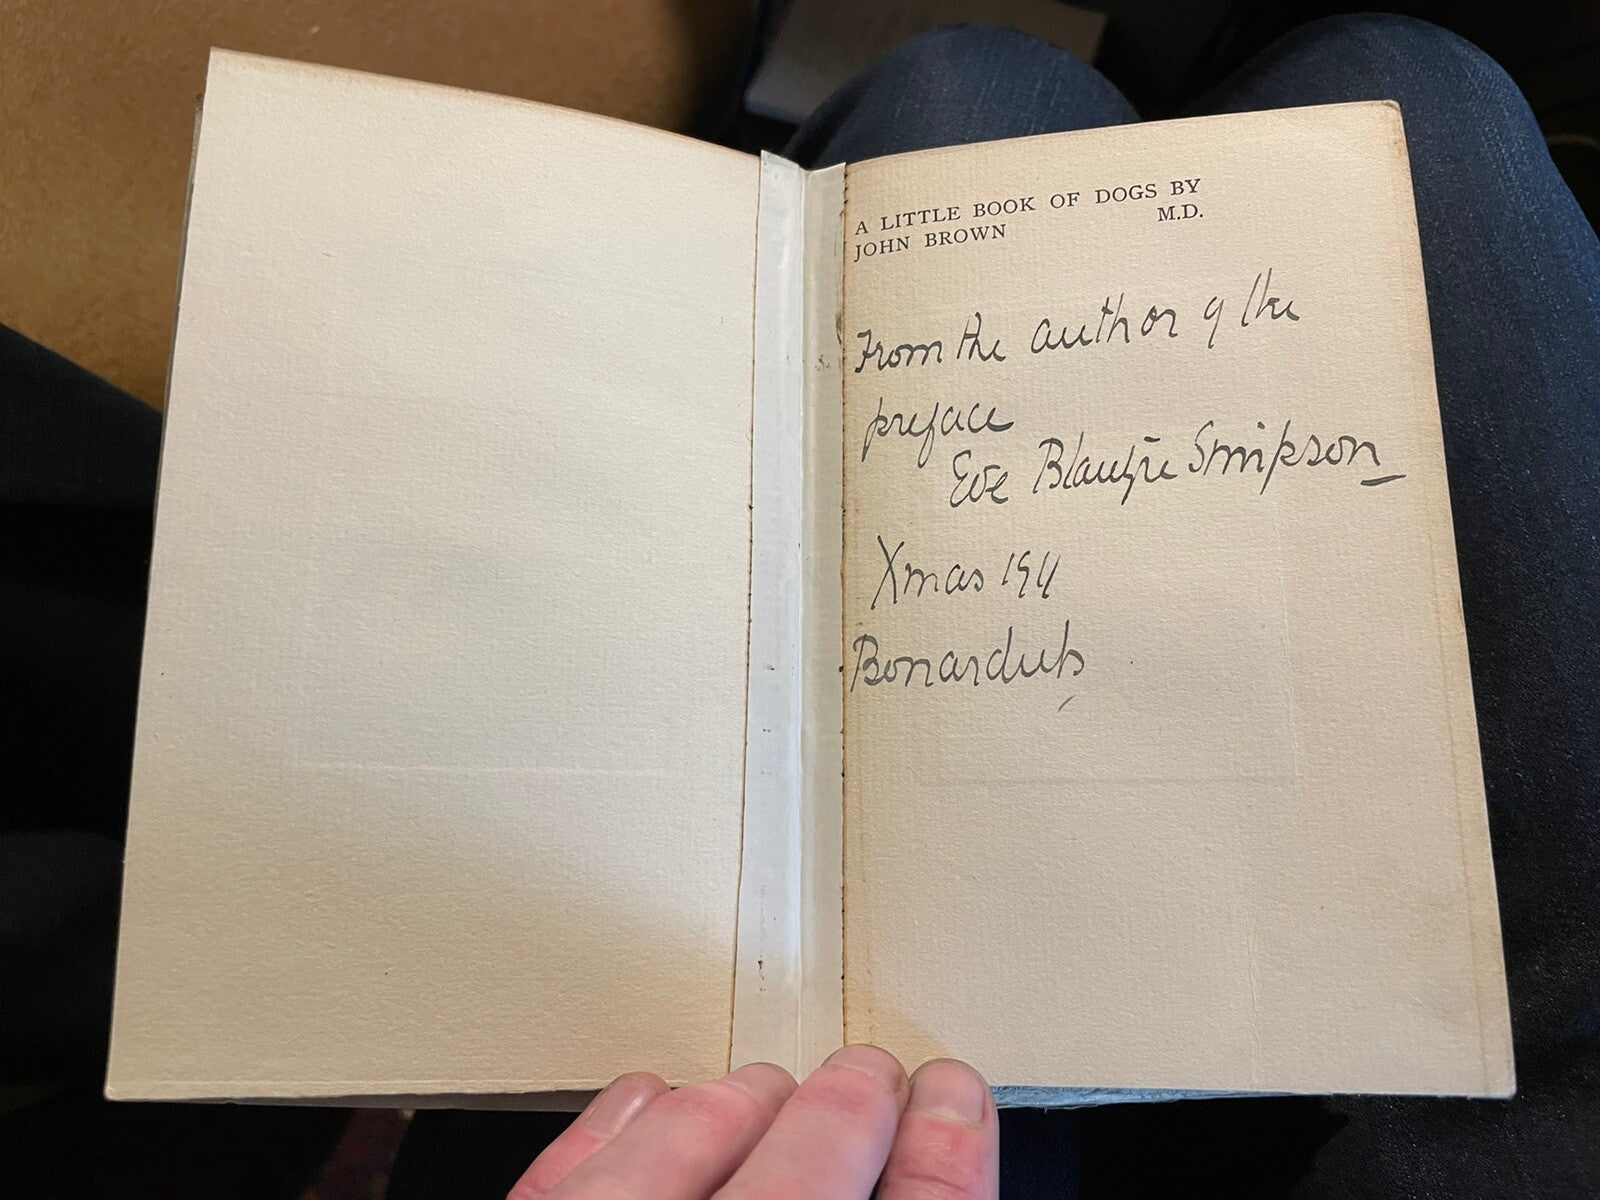 A LITTLE BOOK OF DOGS BY
JOHN BROWN M.D.
From the author of the
preface
Eve Blantyre Simpson
Xmas 1911
Bonardub